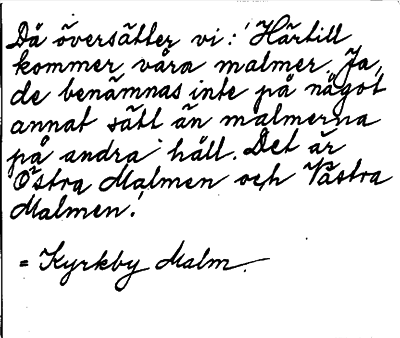 Då översätter vi: 'Härtill
kommer våra malmer. Ja,
de benämnas inte på något
annat sätt än malmerna
på andra håll. Det är
Östra Malmen och Västra
Malmen.'
= Kyrkby Malm.